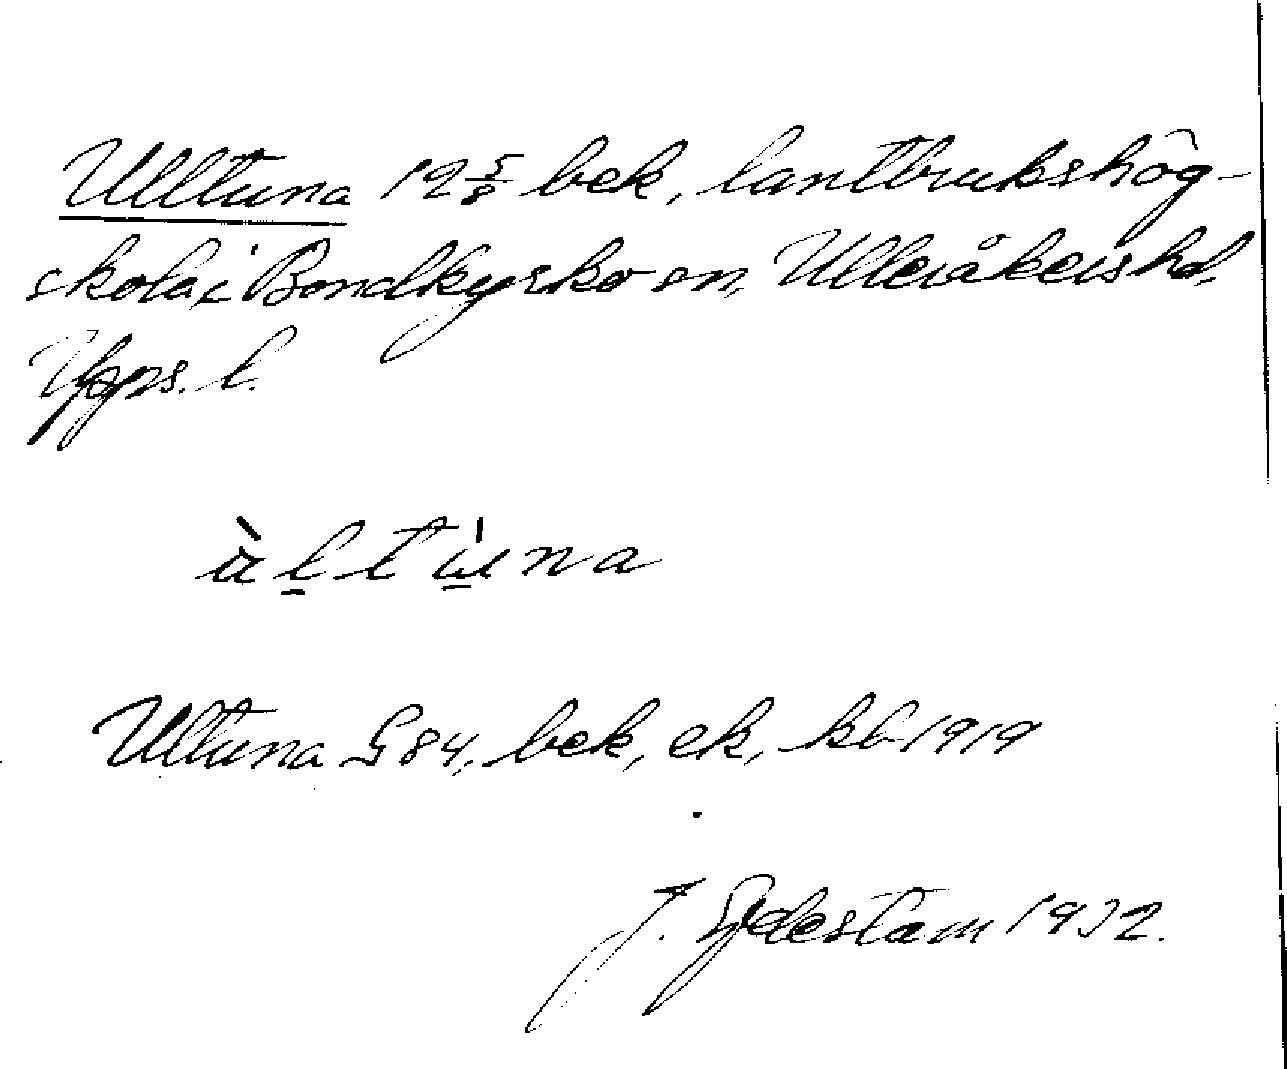 Ulltuna 12 5/8 bek, lantbrukshög-
skola, i Bondkyrko sn, Ulleråkers hd,
Upps. l.
ùltùna
Ultuna G84, bek, ek, kb 1919
J. Sydestam 1932.